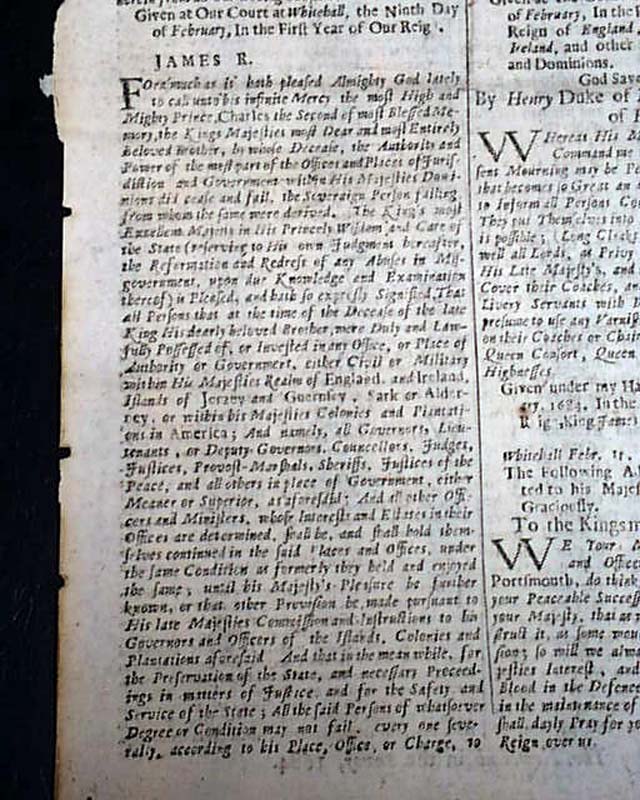 Given at Our Court at Whitehall, the Ninth Day
of February, In the First Year of Our Reig .
JAMES R.
FOrasmuch as it hath pleased Almighty God lately
to call unto his infinite Mercy the most High and
Mighty Prince, Charles the Second of most Blessed Me-
mory, the Kings Majesties most Dear and most Entirely
Beloved Brother, by whose Decease, the Authority and
Power of the most part of the Offices and Places of Juris-
diction and Government within His Majesties Domi-
nions did cease and fail, the Soveraign Person failing,
from whom the same were derived. The King's most
Excellent Majesty in His Princely Wisdom and Care of
the State (reserving to His own Judgment hereafter,
the Reformation and Redress of any Abuses in Mis-
government, upon due Knowledge and Examination
thereof) is Pleased, and hath so expresly Signified, That
all Persons that at the time of the Decease of the late
King His dearly beloved Brother, were Duly and Law-
fully Possessed of, or Invested in any Office, or Place of
Authority or Government, either Civil or Military
within His Majesties Realm of England, and Ireland,
Islands of Jersey and Guernsey, Sark or Alder-
ney, or within his Majesties Colonies and Plantati-
ons in America; And namely, all Governors, Lieu-
tenants, or Deputy-Governors, Councellors, Judges,
Justices, Provost-Marshals, Sheriffs, Justices of the
Peace, and all others in place of Government, either
Meaner or Superior, as aforesaid; And all other Offi-
cers and Ministers, whose Interests and Estates in their
Offices are determined, shall be, and shall hold them-
selves continued in the said Places and Offices, under
the same Condition as formerly they held and enjoyed
the same; until his Majesty's Pleasure be further
known, or that other Provision be made pursuant to
His late Majesties Commission and Instructions to his
Governors and Officers of the Islands, Colonies and
Plantations aforesaid And that in the mean while, for
the Preservation of the State, and necessary Proceed-
ings in matters of Justice, and for the Safety and
Service of the State; All the said Persons of whatsoever
Degree or Condition may not fail, every one seve-
rally, according to his Place, Office, or Charge, to
of February, In the
Reign of England,
Ireland, and other
and Dominions.
God Sav
By Henry Duke of
of
WHereas His M
Command me
sent Mourning may be
that becomes so Great an
to Inform all Persons Co
They put Themselves into
is possible; (Long Cloak
well all Lords, as Privy
His Late Majesty's, and
Cover their Coaches, an
Livery Servants with
presume to use any Varnis
on their Coaches or Chair
Queen Consort, Queen
Highnesses.
Given under my Ha
ry, 1684. In the
R ig , King James
Whitehall Febr. 11.
The Following A
ted to his Majes
Graciously.
To the Kings m
WE Your
and Office
Portsmouth, do think
your Peaceable Success
your Majesty, that as
struct it, as some wou
sion; so will we alwa
jesties Interest, and
Blood in the Defence
in the maintenance of
shall dayly Pray for yo
Reign over us.